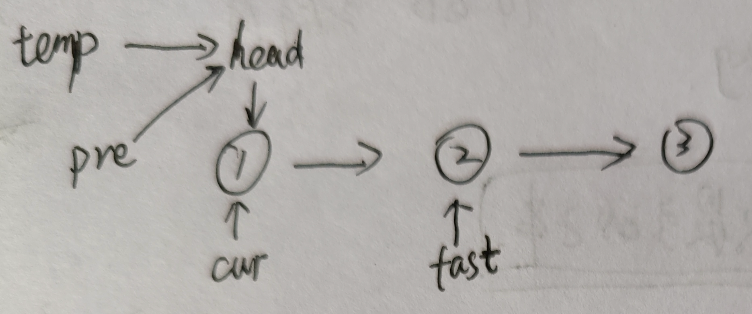 temp head
pre 1 2 3
cur fast